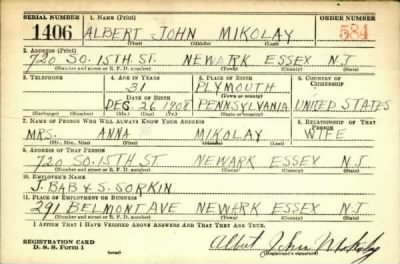 SERIAL NUMBER 1. NAME (Print) ORDER NUMBER
1406 ALBERT JOHN MIKOLAY 584
(First) (Middle) (Last)
2. ADDRESS (Print)
720 SO. 15TH. ST. NEWARK ESSEX N.J.
(Number and street or R. F. D. number) (Town) (County) (State)
3. TELEPHONE 4. AGE IN YEARS 5. PLACE OF BIRTH 6. COUNTRY OF CITIZENSHIP
31 PLYMOUTH
DATE OF BIRTH (Town or county)
DEC. 26 1908 PENNSYLVANIA UNITED STATES
(Exchange) (Number) (Mo.) (Day) (Yr.) (State or country)
7. NAME OF PERSON WHO WILL ALWAYS KNOW YOUR ADDRESS 8. RELATIONSHIP OF THAT PERSON
MRS. ANNA MIKOLAY WIFE
(Mr., Mrs., Miss) (First) (Middle) (Last)
9. ADDRESS OF THAT PERSON
720 SO. 15TH. ST NEWARK ESSEX N.J
(Number and street or R. F. D. number) (Town) (County) (State)
10. EMPLOYER'S NAME
J. BAB & S. SORKIN
11. PLACE OF EMPLOYMENT OR BUSINESS
291 BELMONT AVE NEWARK ESSEX N.J
(Number and street or R. F. D. number) (Town) (County) (State)
I AFFIRM THAT I HAVE VERIFIED ABOVE ANSWERS AND THAT THEY ARE TRUE.
REGISTRATION CARD
D. S. S. Form 1 Albert John Mikolay